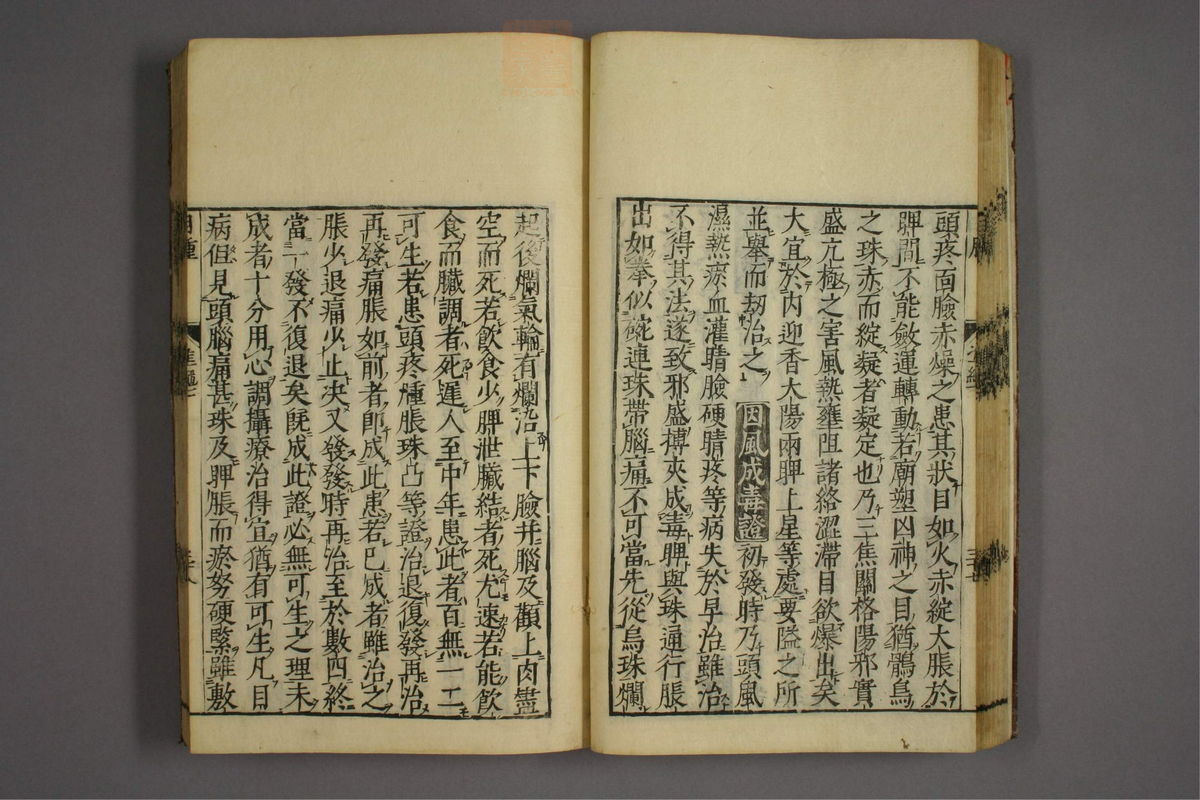 頭疼面臉赤燥之患其狀目如火赤綻大脹於
睥間不能斂運轉動若廟塑凶神之目猶鶻鳥
之珠赤而綻凝者凝定也乃三焦關格陽邪實
盛亢極之害風熱壅阻諸絡澀滯目欲爆出矣
大宜於內迎香太陽兩睥上星等處要隘之所
並舉而劫治之 因風成毒證 初發時乃頭風
濕熱瘀血灌睛臉硬睛疼等病失於早治雖治
不得其法遂致邪盛搏夾成毒睥與珠通行脹
出如拳似碗連珠帶腦痛不可當先從烏珠爛
起後爛氣輪有爛沿上下臉并腦及顴上肉盡
空而死若飲食少脾泄臟結者死尤速若能飲
食而臟調者死遲人至中年患此者百無一二
可生若患頭疼腫脹珠凸等證治退復發再治
再發痛脹如前者即成此患若已成者雖治之
脹少退痛少止決又發發時再治至於數四終
當一發不復退矣既成此證必無可生之理未
成者十分用心調攝療治得宜猶有可生凡目
病但見頭腦痛甚珠及睥脹而瘀努硬緊雖敷